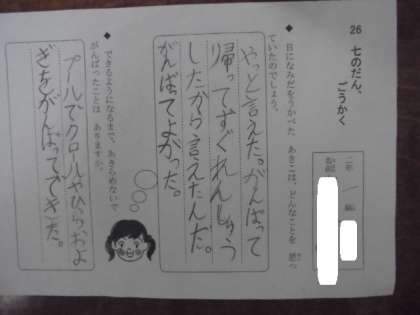 26 七のだん、
ごうかく
二年 / 組
名前
◆ 目になみだをうかべた あきこは、どんなことを 思っ
ていたのでしょう。
やっと言えた。がんばって
帰ってすぐれんしゅう
したから言えたんだ。
がんばてよかった。
◆ できるようになるまで、あきらめないで
がんばったことは ありますか。
プールでクロールやひらおよ
ぎをがんばってできた。